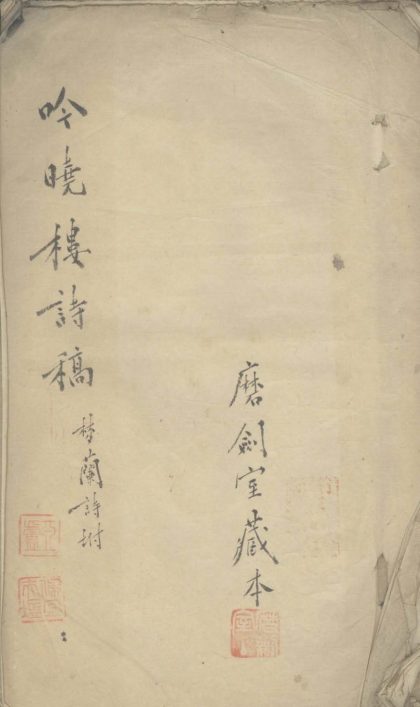 吟曉樓詩稿
蘭詩坿
磨劍室藏本